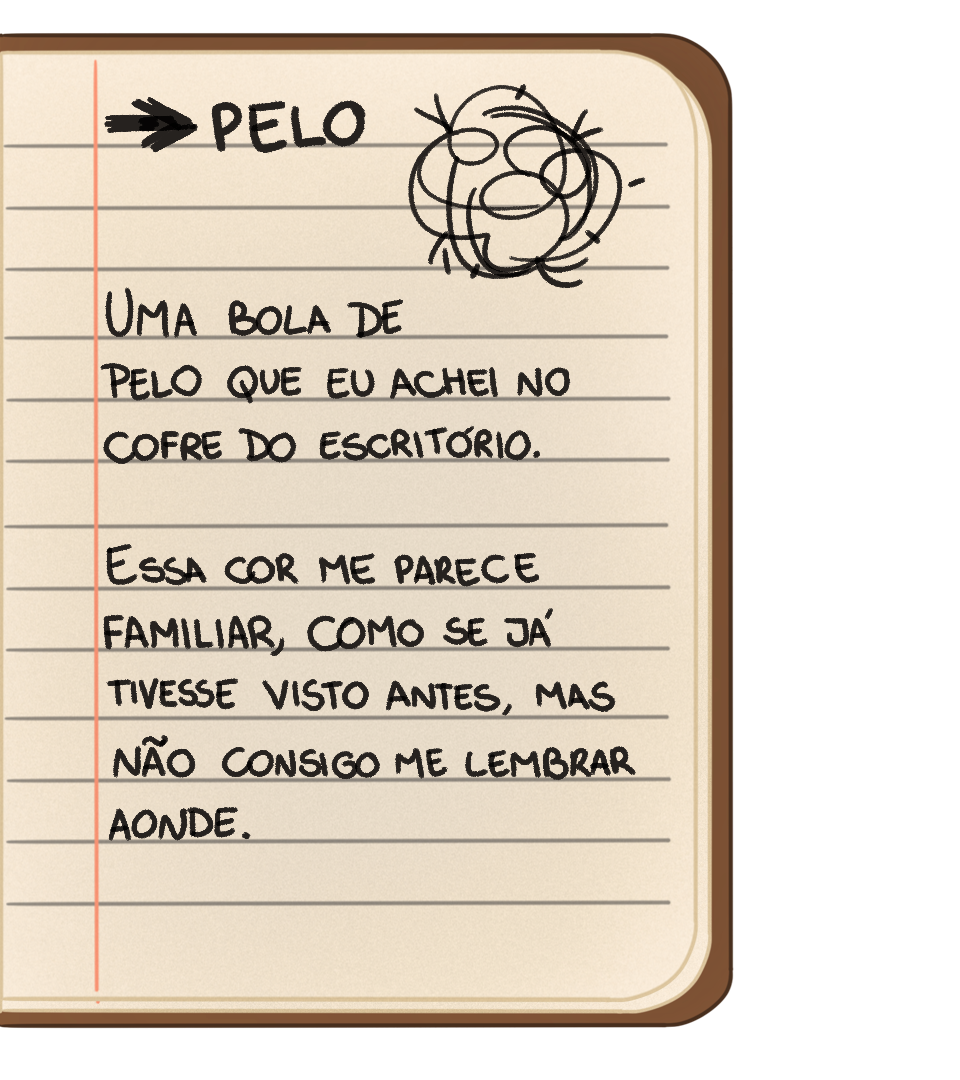 PELO
UMA BOLA DE
PELO QUE EU ACHEI NO
COFRE DO ESCRITÓRIO.
ESSA COR ME PARECE
FAMILIAR, COMO SE JÁ
TIVESSE VISTO ANTES, MAS
NÃO CONSIGO ME LEMBRAR
AONDE.